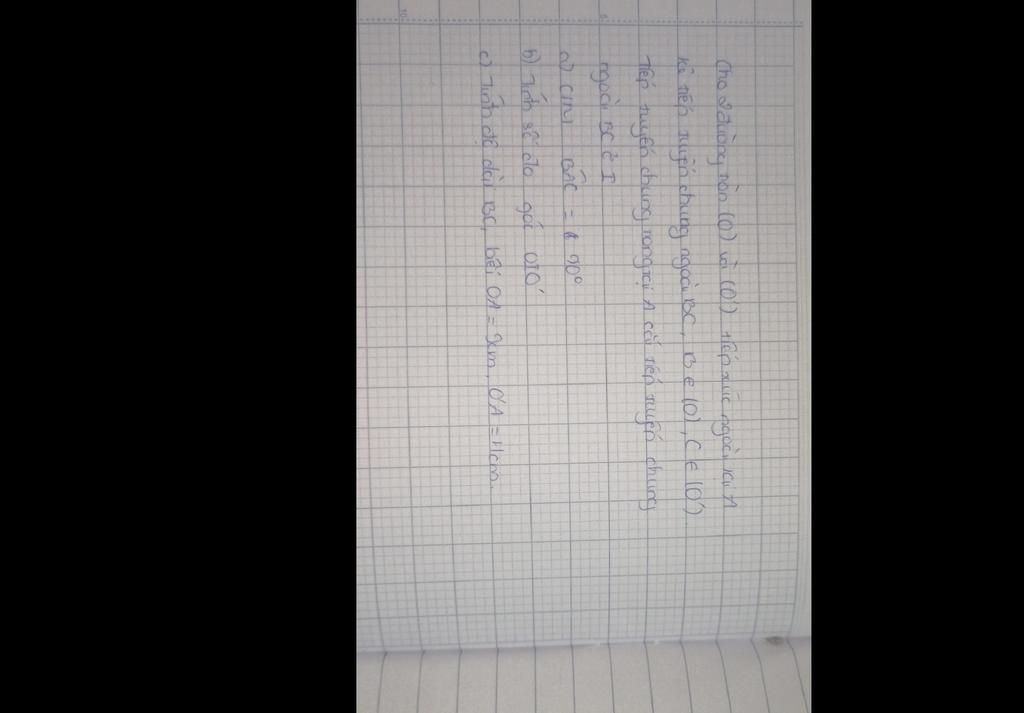 Cho 2 đường tròn (O) và (O') tiếp xúc ngoài tại A
Kẻ tiếp tuyến chung ngoài BC, B ∈ (O), C ∈ (O').
Tiếp tuyến chung trong tại A cắt tiếp tuyến chung
ngoài BC ở I
a) CIM BÂC = 90°
b) Tính số đo góc OIO'
c) Tính độ dài BC, biết OA = cm, O'A = 4cm.